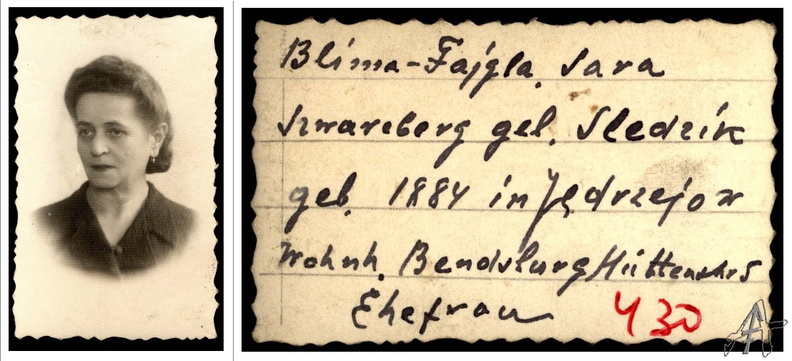 Blima-Fajgla Sara
Szwarcberg geb. Sledzik
geb. 1884 in Jędrzejow
Wohnh. Bendsburg Hüttenstr 5
Ehefrau
430